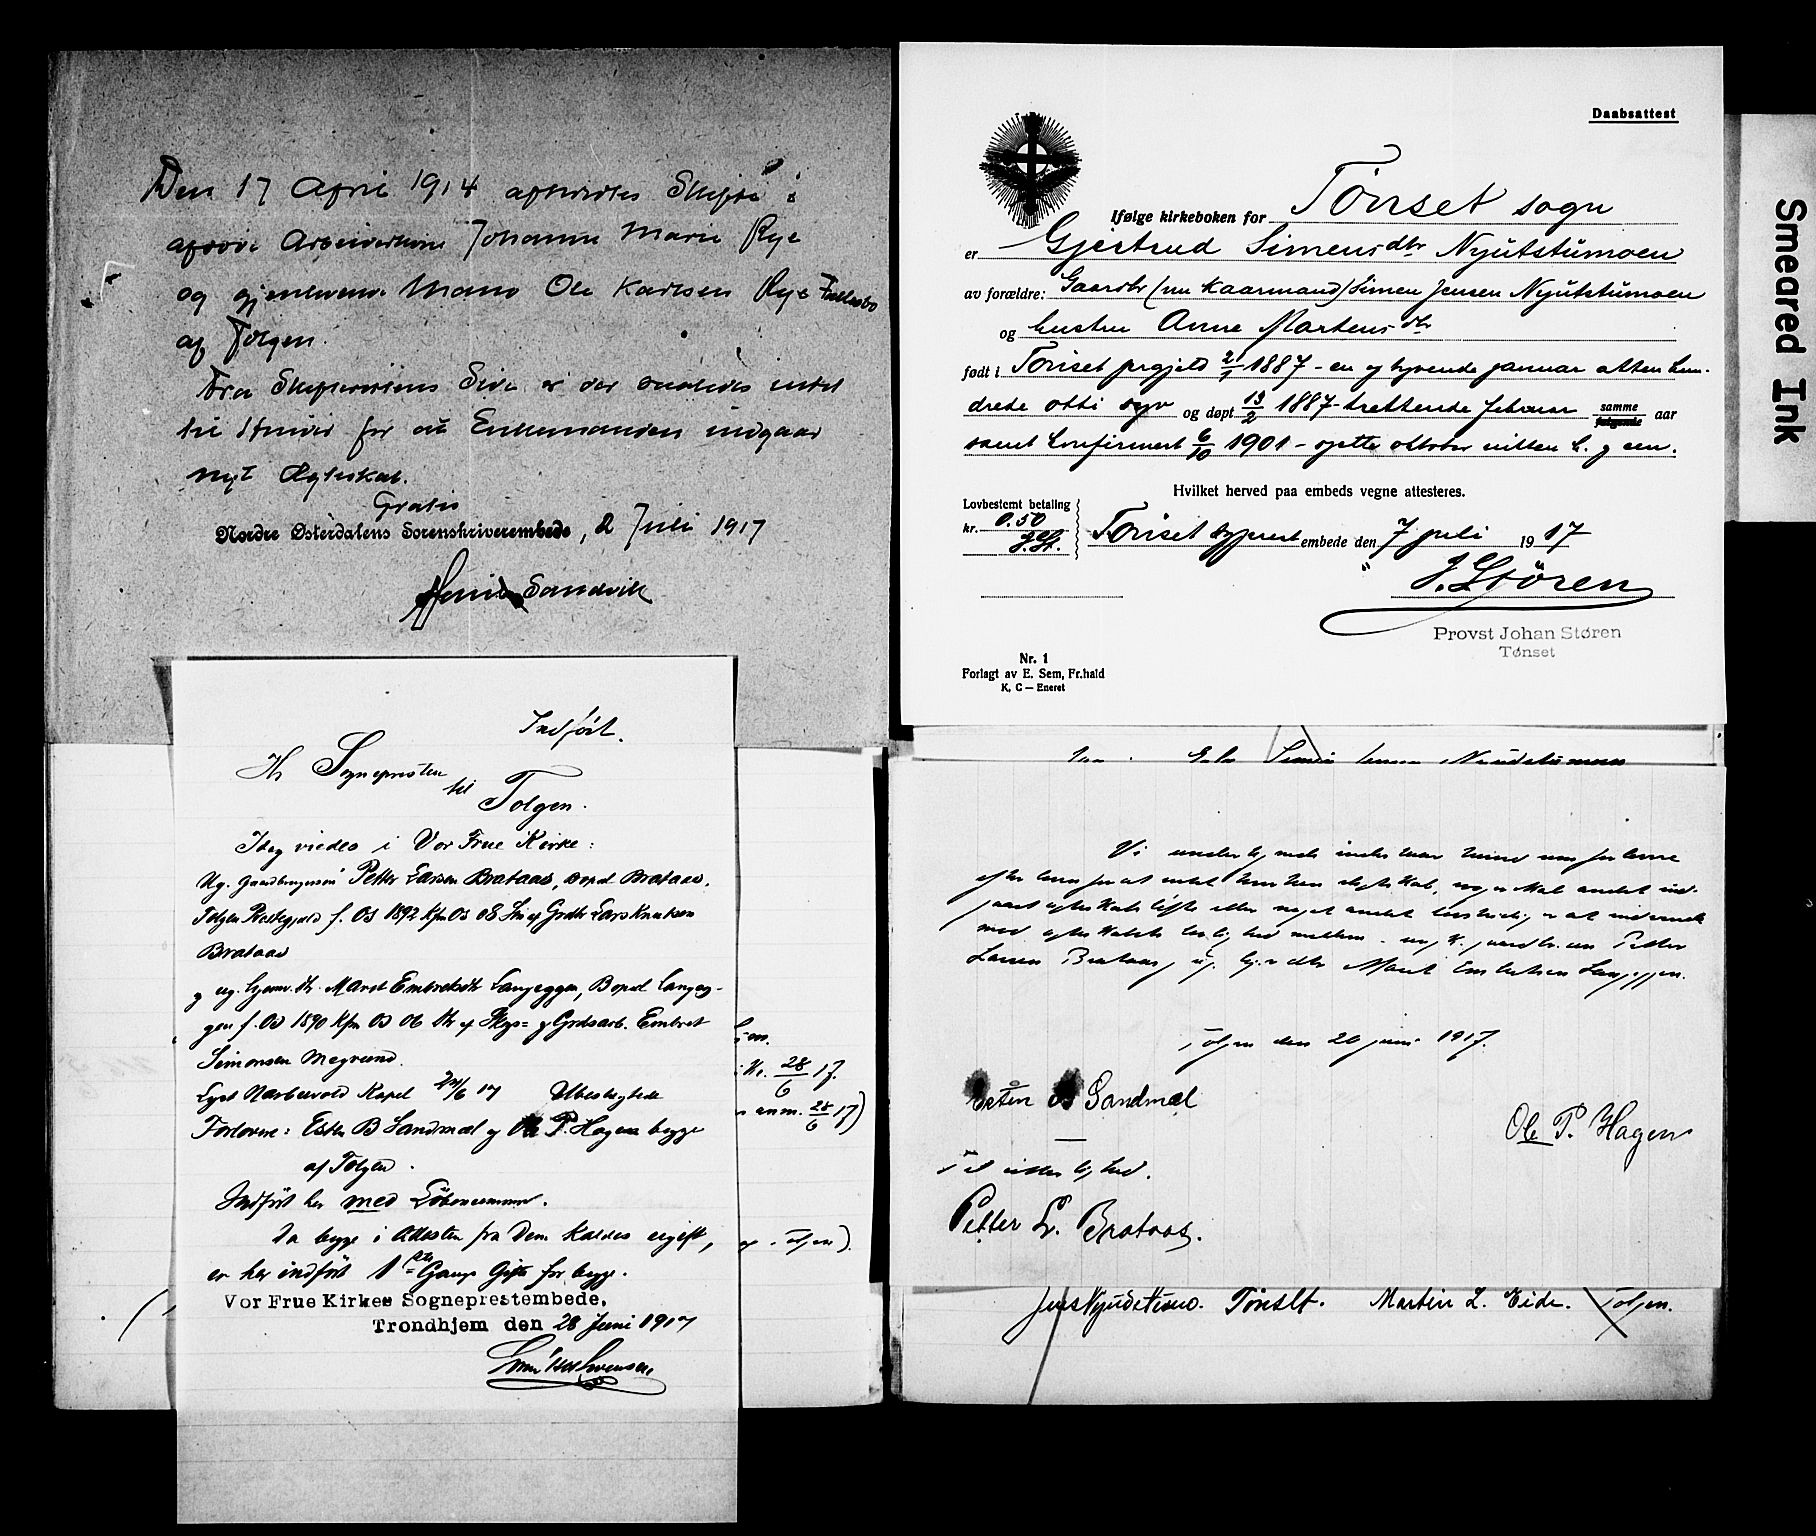 Den 17 April 1914 afholdtes Skifte i
afdøde Arbeiderkone Johanne Marie Rye
og gjenlevende Mand Ole Karlsen Rye
af Tolgen.
Fra Skifterettens Side er der saaledes intet
til Hinder for at Enkemanden indgaar
nyt Ægteskab.
Gratis
Nordre Østerdalens Sorenskriverembede, 2 Juli 1917
Sandvik
Daabsattest
Ifølge kirkeboken for Tönset sogn
er Gjertrud Simensdtr Nyutstumoen
av forældre: Gaardbr (nu Kaarmand) Simen Jensen Nyutstumoen
og hustru Anne Martensdtr
født i Tönset prgjeld 21/1 1887 - en og tyvende januar atten hun-
drede otti syv og døpt 13/2 1887 - trettende februar samme følgende aar
samt konfirmert 6/10 1901 - sjette oktober nitten h. og en.
Hvilket herved paa embeds vegne attesteres.
Lovbestemt betaling
kr. 0.50
J.St.
Tönset sogneprest embede den 7 juli 1917
J. Stören
Provst Johan Støren
Tønset
Nr. 1
Forlagt av E. Sem, Fr.hald
K, C — Eneret
Smeared Ink
Indført.
Hr Sognepresten
til
Tolgen.
Idag viedes i Vor Frue Kirke:
Ug. Gaardbrugersøn Petter Larsen Brataas, Bopæl Brataas,
Tolgen Præstegjeld f. Os 1892 Kfm Os 08 Søn af Grdbr Lars Knutsen
Brataas
og ug. Hjemv. dtr. Marit Embretsdtr Langeggen, Bopæl Langeg-
gen f. Os 1890 Kfm Os 06 Dtr af Skys= og Grdsarb. Embret
Simonsen Megrund.
Lyst Narbuvold Kapel 24/6 17 Ubeslægtede
Forlovere: Esten B Sandmæl og Ole P. Hagen begge
af Tolgen.
Indført her med Löbenummer.
Da begge i Attesten fra Dem kaldes ugift,
er her indført 1ste Gang Gifte for begge.
Vor Frue Kirkes Sogneprestembede,
Trondhjem den 28 Juni 1917
28/6 17.
anm. 28/6 17)
Tolgen).
Vi undertegnede indestaar herved som forlovere
efter loven for at intet hverken slegtskab, svogerskab, andet ind-
gaaet egteskabsløfte eller noget andet lovstridig er at indvende
mod egteskabets lovlighed mellem ung k. gaardbr. søn Petter
Larsen Brataas, og pige Marit Embretsen Langeggen.
Tolgen den 20 juni 1917.
Esten B Sandmæl
Ole P. Hagen
Til vitterlighed.
Petter L. Brataas.
Jens Nyudstumo. Tönset. Martin L. Eide. Tolgen.